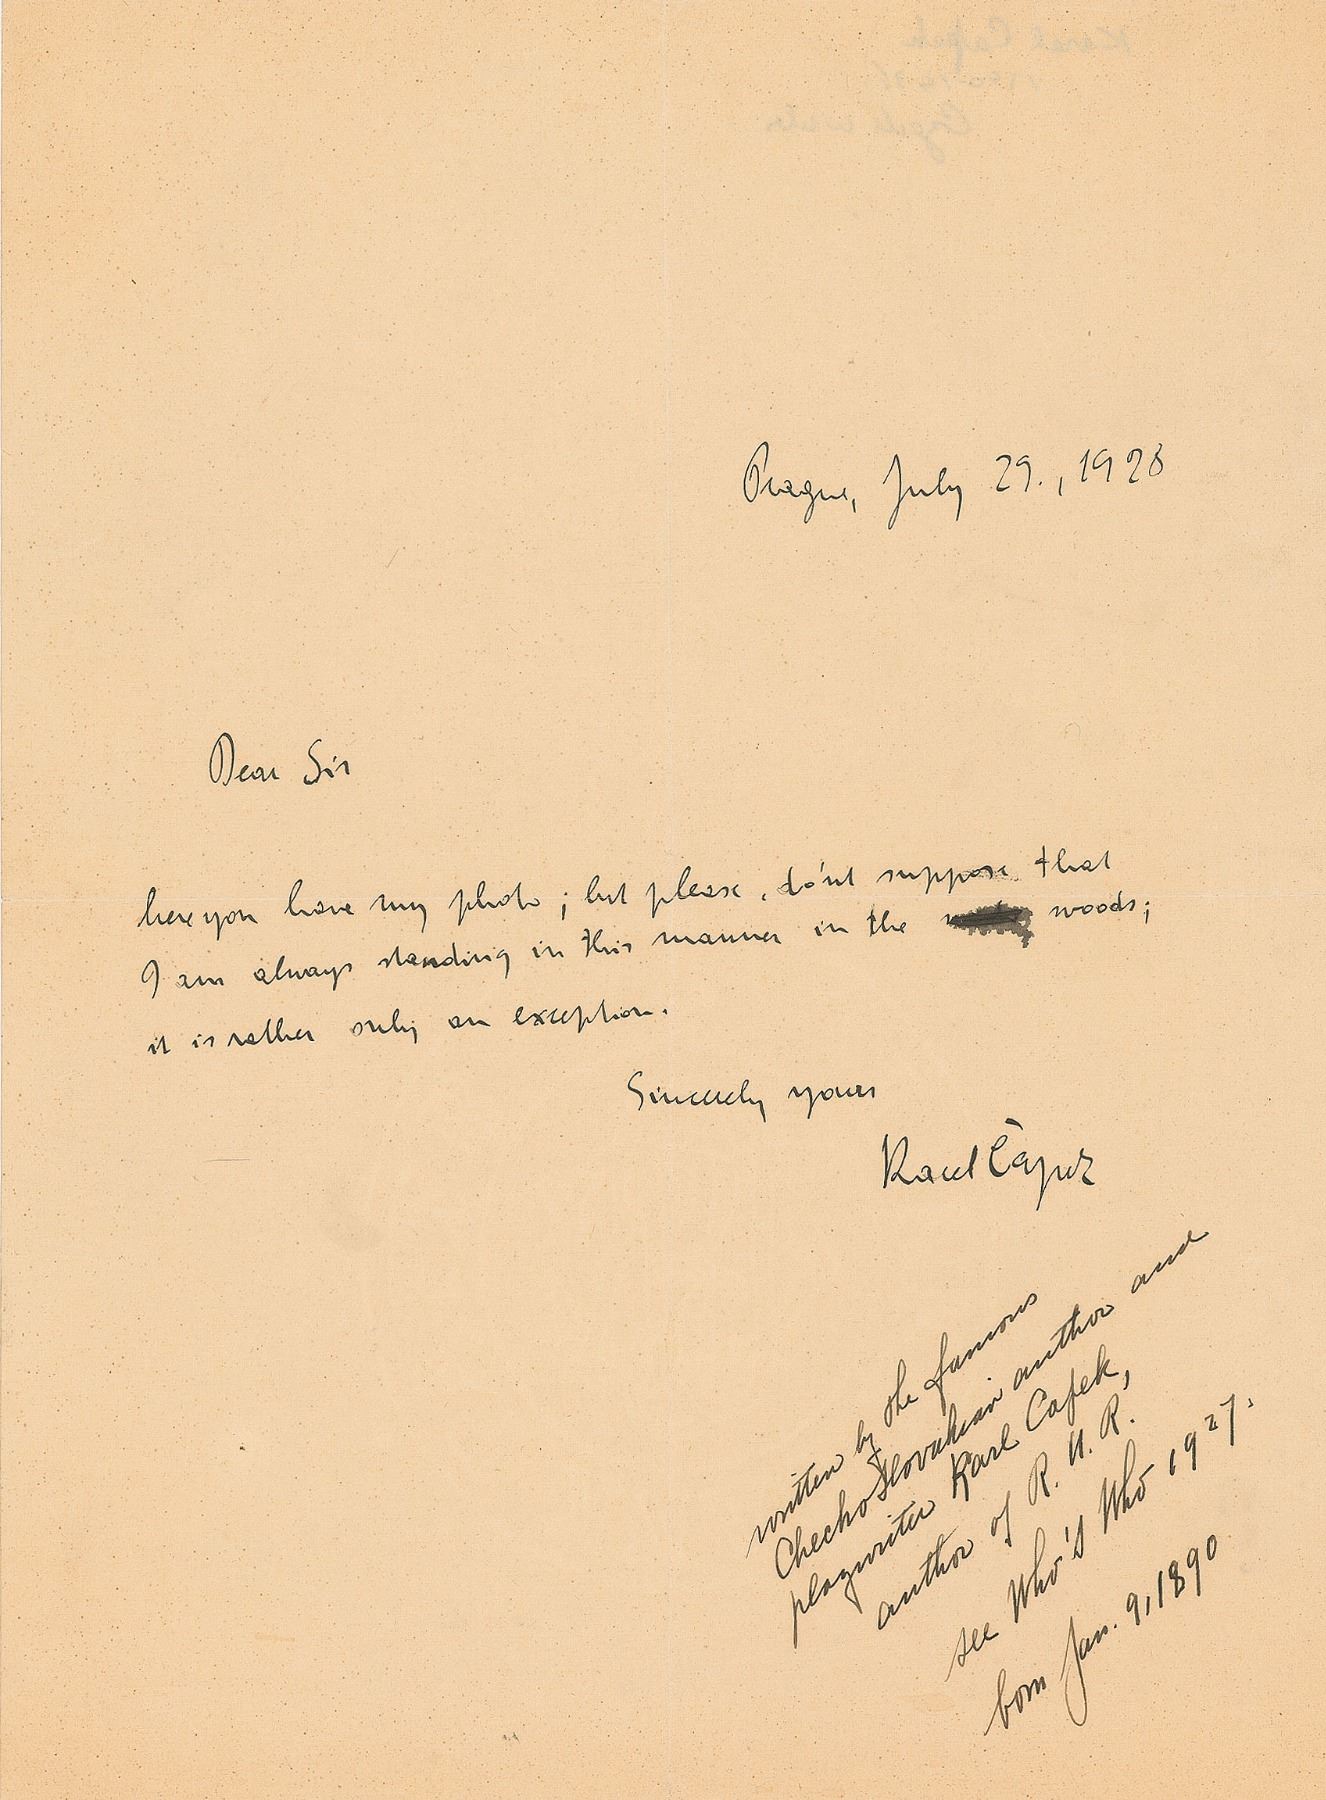 Prague, July 29., 1928
Dear Sir
here you have my photo; but please, do'nt suppose that
I am always standing in this manner in the woods;
it is rather only an exception.
Sincerely yours
Karel Čapek
written by the famous
Checho Slovakian author and
playwriter Karl Capek,
author of R. U. R.
see Who's Who 1927.
born Jan. 9, 1890